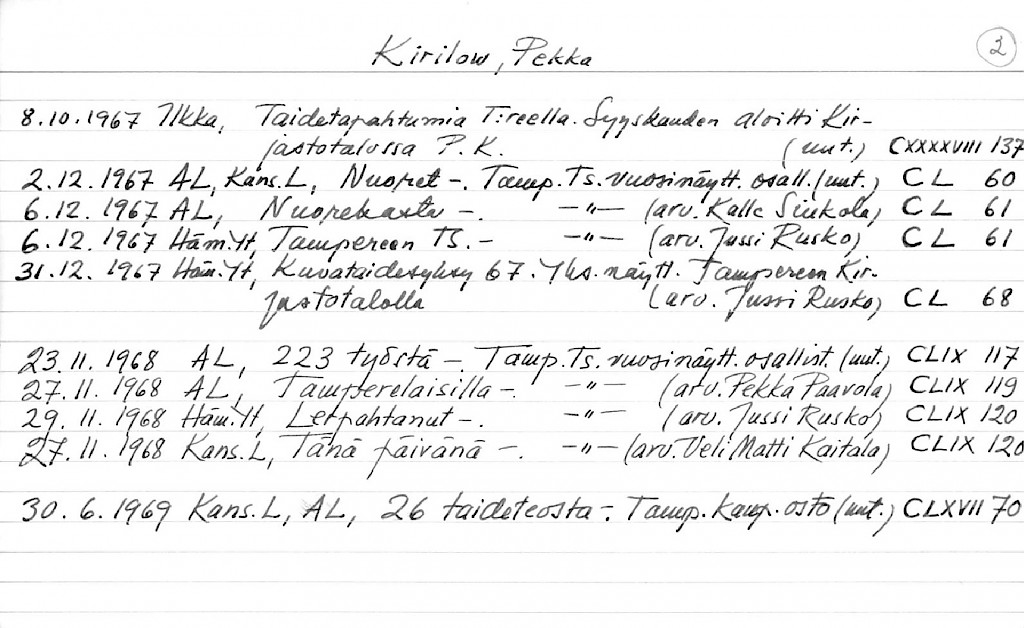 2
Kirilow, Pekka
8.10.1967 Ilkka, Taidetapahtumia T:reella. Syyskauden aloitti Kir-
jastotalossa P.K. (uut.) CXXXXVIII 137
2.12.1967 AL, Kans.L, Nuoret -. Tamp.Ts.vuosinäytt.osall.(uut.) CL 60
6.12.1967 AL, -. -"- (arv. Kalle Siukola) CL 61
6.12.1967 Häm.Yt, Tampereen TS.- -"- (arv. Jussi Rusko) CL 61
31.12.1967 Häm.Yt, Kuvataidesyksy 67. Yks.näytt. Tampereen Kir-
jastotalolla (arv. Jussi Rusko) CL 68
23.11.1968 AL, 223 työstä - Tamp.Ts.vuosinäytt.osallist.(uut.) CLIX 117
27.11.1968 AL, Tamperelaisilla -. -"- (arv.Pekka Paavola) CLIX 119
29.11.1968 Häm.Yt, Lerpahtanut -. -"- (arv. Jussi Rusko) CLIX 120
27.11.1968 Kans.L, Tänä päivänä -. -"- (arv.Veli Matti Kaitala) CLIX 120
30.6.1969 Kans.L, AL, 26 taideteosta -. Tamp.kaup.osto (uut.) CLXVII 70